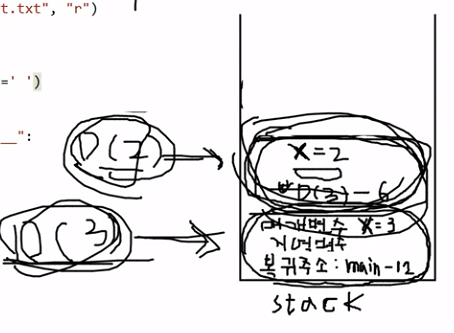 t.txt", "r")
=' ')
__":
D(2)
x=2
D(3)-6
D(3)
매개변수 x=3
지역변수
복귀주소: main-12
stack